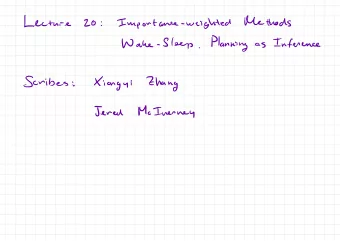 Lecture 20: Importance-weighted Methods
Wake-Sleep, Planning as Inference
Scribes: Xiongyi Zhang
Jered McInerney